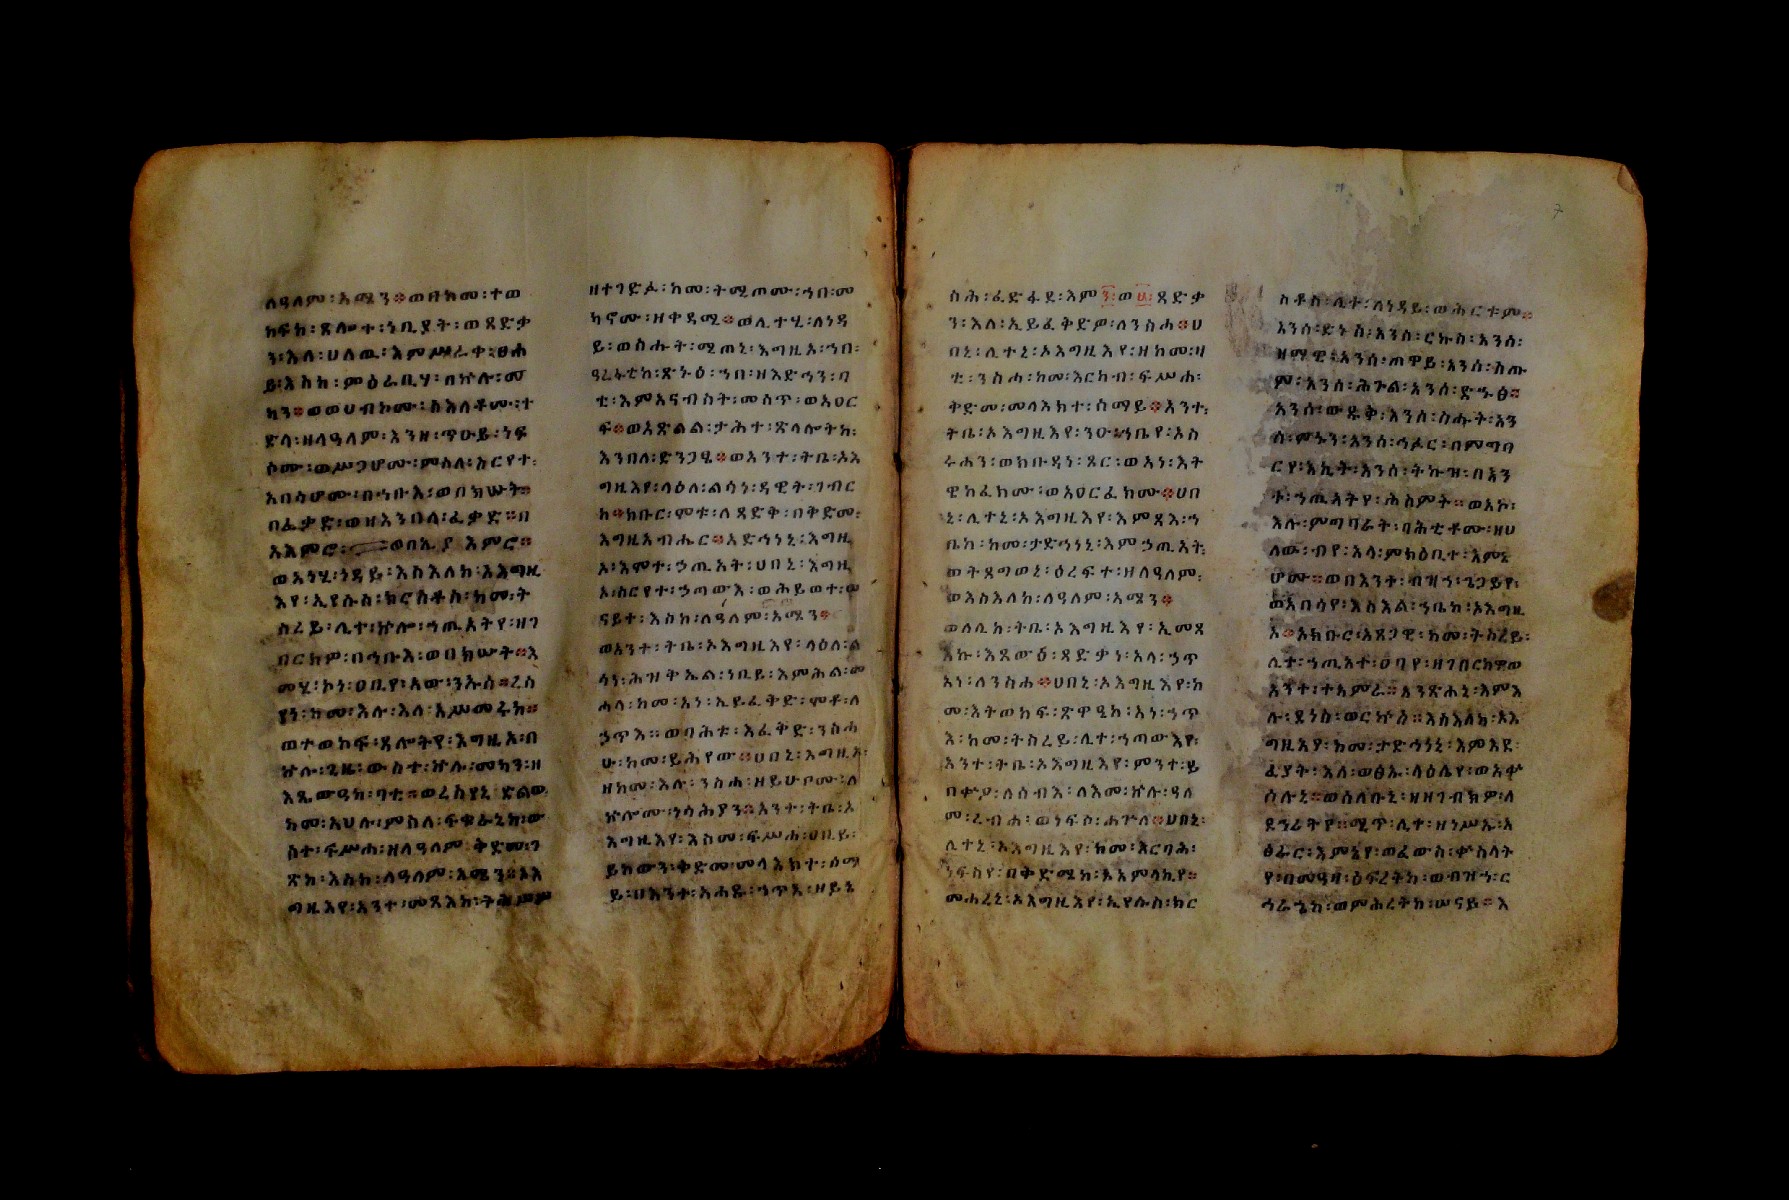 ለዓለም፡አሜን፨ወበከመ፡ተወ
ከፍከ፡ጸሎተ፡ነቢያት፡ወጻድቃ
ን፡እለ፡ሀለዉ፡እምሥራቀ፡ፀሐ
ይ፡እስከ፡ምዕራቢሃ፡በኵሉ፡መ
ካን፨ወወሀብኮሙ፡ስእለቶሙ፡ተ
ድላ፡ዘለዓለም፡እንዘ፡ጥዑይ፡ነፍ
ሶሙ፡ወሥጋሆሙ፡ምስለ፡ስርየተ፡
አበሳሆሙ፡በኅቡእ፡ወበክሡት፨
በፈቃድ፡ወዘእንበለ፡ፈቃድ፨በ
አእምሮ፡ወበኢያእምሮ፨
ወአነሂ፡ነዳይ፡እስእለከ፡እእግዚ
እየ፡ኢየሱስ፡ክሮስቶስ፡ከመ፡ት
ስረይ፡ሊተ፡ኵሎ፡ኀጢአትየ፡ዘገ
በርክዎ፡በኅቡእ፡ወበክሡት፨እ
መሂ፡ኮነ፡ዐቢየ፡አው፡ንኡሰ፨ረስ
ያነ፡ከመ፡እሉ፡እለ፡አሥመሩከ፨
ወተወከፍ፡ጸሎትየ፡እግዚአ፡በ
ኵሉ፡ጊዜ፡ውስተ፡ኵሉ፡መካን፡ዘ
እጼውዓከ፡ባቲ፨ወረስየኒ፡ድልወ
ከመ፡አሀሉ፡ምስለ፡ፍቁራኒከ፡ው
ስተ፡ፍሥሐ፡ዘለዓለም፡ቅድመ፡ገ
ጽከ፡እስከ፡ለዓለም፡አሜን፨ኦእ
ግዚእየ፡አንተ፡መጻእከ፡ትሕሥሥ
ዘተገድፈ፡ከመ፡ትሚጦሙ፡ኀበ፡መ
ካኖሙ፡ዘቀዳሚ፨ወሊተሂ፡ለነዳ
ይ፡ወስሑት፡ሚጠኒ፡እግዚእ፡ኀበ፡
ዓረፋቲከ፡ጽኑዕ፡ኀበ፡ዘእድኅን፡ባ
ቲ፡እምአናብስት፡መስጥ፡ወአዐር
ፍ፨ወእጽልል፡ታሕተ፡ጽላሎትከ፡
እንበለ፡ድንጋፄ፨ወአንተ፡ትቤ፡ኦእ
ግዚእየ፡ላዕለ፡ልሳነ፡ዳዊት፡ገብር
ከ፨ክቡር፡ሞቱ፡ለጻድቅ፡በቅድመ፡
እግዚአብሔር፨አድኅነኒ፡እግዚ
አ፡እሞተ፡ኃጢአት፡ሀበኒ፡እግዚ
አ፡ስርየተ፡ኃጣውእ፡ወሕይወተ፡ሠ
ናይተ፡እስከ፡ለዓለም፡አሜን፨
ወአንተ፡ትቤ፡ኦእግዚእየ፡ላዕለ፡ል
ሳነ፡ሕዝቅኤል፡ነቢይ፡እምሕል፡መ
ሐላ፡ከመ፡አነ፡ኢይፈቅድ፡ሞቶ፡ለ
ኃጥእ፨ወባሕቱ፡እፈቅድ፡ንስሐ
ሁ፡ከመ፡ይሕየው፨ሀበኒ፡እግዚአ፡
ዘከመ፡እሉ፡ንስሐ፡ዘይሁቦሙ፡ለ
ኵሎሙ፡ነሳሕያን፨አንተ፡ትቤ፡ኦ
እግዚእየ፡እስመ፡ፍሥሐ፡ዐቢይ፡
ይከውን፡ቅድመ፡መላእክተ፡ሰማ
ይ፡በእንተ፡አሐዱ፡ኃጥእ፡ዘይኔ
ስሕ፡ፈድፋደ፡እም፡፺፡ወ፱፡ጻድቃ
ን፡እለ፡ኢይፈቅድዎ፡ለንስሐ፨ሀ
በኒ፡ሊተኒ፡ኦእግዚእየ፡ዘከመ፡ዛ
ቲ፡ንስሐ፡ከመ፡እርከብ፡ፍሥሐ፡
ቅድመ፡መላእክተ፡ሰማይ፨አንተ፡
ትቤ፡ኦእግዚእየ፡ንዑ፡ኀቤየ፡እስ
ሩሐን፡ወክቡዳነ፡ጾር፡ወአነ፡እት
ዌከፈክሙ፡ወአዐርፈክሙ፨ሀበ
ኒ፡ሊተኒ፡ኦእግዚእየ፡እምጻእ፡ኀ
ቤከ፡ከመ፡ታድኅነኒ፡እምኃጢአት፡
ወትጸግወኒ፡ዕረፍተ፡ዘለዓለም፡
ወእስእለከ፡ለዓለም፡አሜን፨
ወለሊከ፡ትቤ፡ኦእግዚእየ፡ኢመጻ
እኩ፡እጸውዕ፡ጻድቃነ፡አላ፡ኃጥ
አነ፡ለንስሐ፨ሀበኒ፡ኦእግዚእየ፡ከ
መ፡እትወከፍ፡ጽዋዔከ፡አነ፡ኃጥ
እ፡ከመ፡ትስረይ፡ሊተ፡ኃጣውእየ፡
አንተ፡ትቤ፡ኦእግዚእየ፡ምንተ፡ይ
በቍዖ፡ለሰብእ፡ለእመ፡ኵሉ፡ዓለ
መ፡ረብሐ፡ወነፍሶ፡ሐጕለ፨ሀበኒ፡
ሊተኒ፡ኦእግዚእየ፡ከመ፡እርባሕ፡
ነፍስየ፡በቅድሜከ፡ኦአምላኪየ፨
መሐረኒ፡ኦእግዚእየ፡ኢየሱስ፡ክር
ስቶስ፡ሊተ፡ለነዳይ፡ወሕርተም፨
አንሰ፡ድኑስ፡አንሰ፡ርኩስ፡አንሰ፡
ዘማዊ፡አንሰ፡ጠዋይ፡አንሰ፡ስጡ
ም፡አንሰ፡ሕጉል፡አንሰ፡ድኁፅ፨
አንሰ፡ውዱቅ፡አንሰ፡ስሑት፡አን
ሰ፡ምኑን፡አንሰ፡ኅፉር፡በምግባ
ርየ፡እኪት፡አንሰ፡ትኩዝ፡በእን
ተ፡ኀጢአትየ፡ሕስምት፨ወአኮ፡
እሉ፡ምግባራት፡ባሕቲቶሙ፡ዘሀ
ለው፡ብየ፡አላ፡ምክዕቢተ፡እምኔ
ሆሙ፨ወበእንተ፡ብዝኀ፡ጌጋይየ፡
ወአበሳየ፡እስእል፡ኀቤከ፡ኦእግዚ
እ፨አክቡር፡አጸጋዊ፡ከመ፡ትስረይ፡
ሊተ፡ኀጢአተ፡ዐባየ፡ዘገበርክዋ፡ወ
አንተ፡ተአምራ፨አንጽሐኒ፡እምእ
ሉ፡ደነስ፡ወርኵስ፨እስእለከ፡ኦእ
ግዚእየ፡ከመ፡ታድኅነኒ፡እምእደ፡
ፈያት፡እለ፡ወፅኡ፡ላዕሌየ፡ወአቍ
ሰሉኒ፨ወሰለቡኒ፡ዘዘገብክዎ፡ለ
ደኀሪትየ፨ሚጥ፡ሊተ፡ዘነሥኡ፡አ
ፅራር፡እምኔየ፡ወፈውስ፡ቍስላት
የ፡በመዓዛ፡ዕፍረትከ፡ወብዝኀ፡ር
ኅራኄከ፡ወምሕረትከ፡ሠናይ፨እ